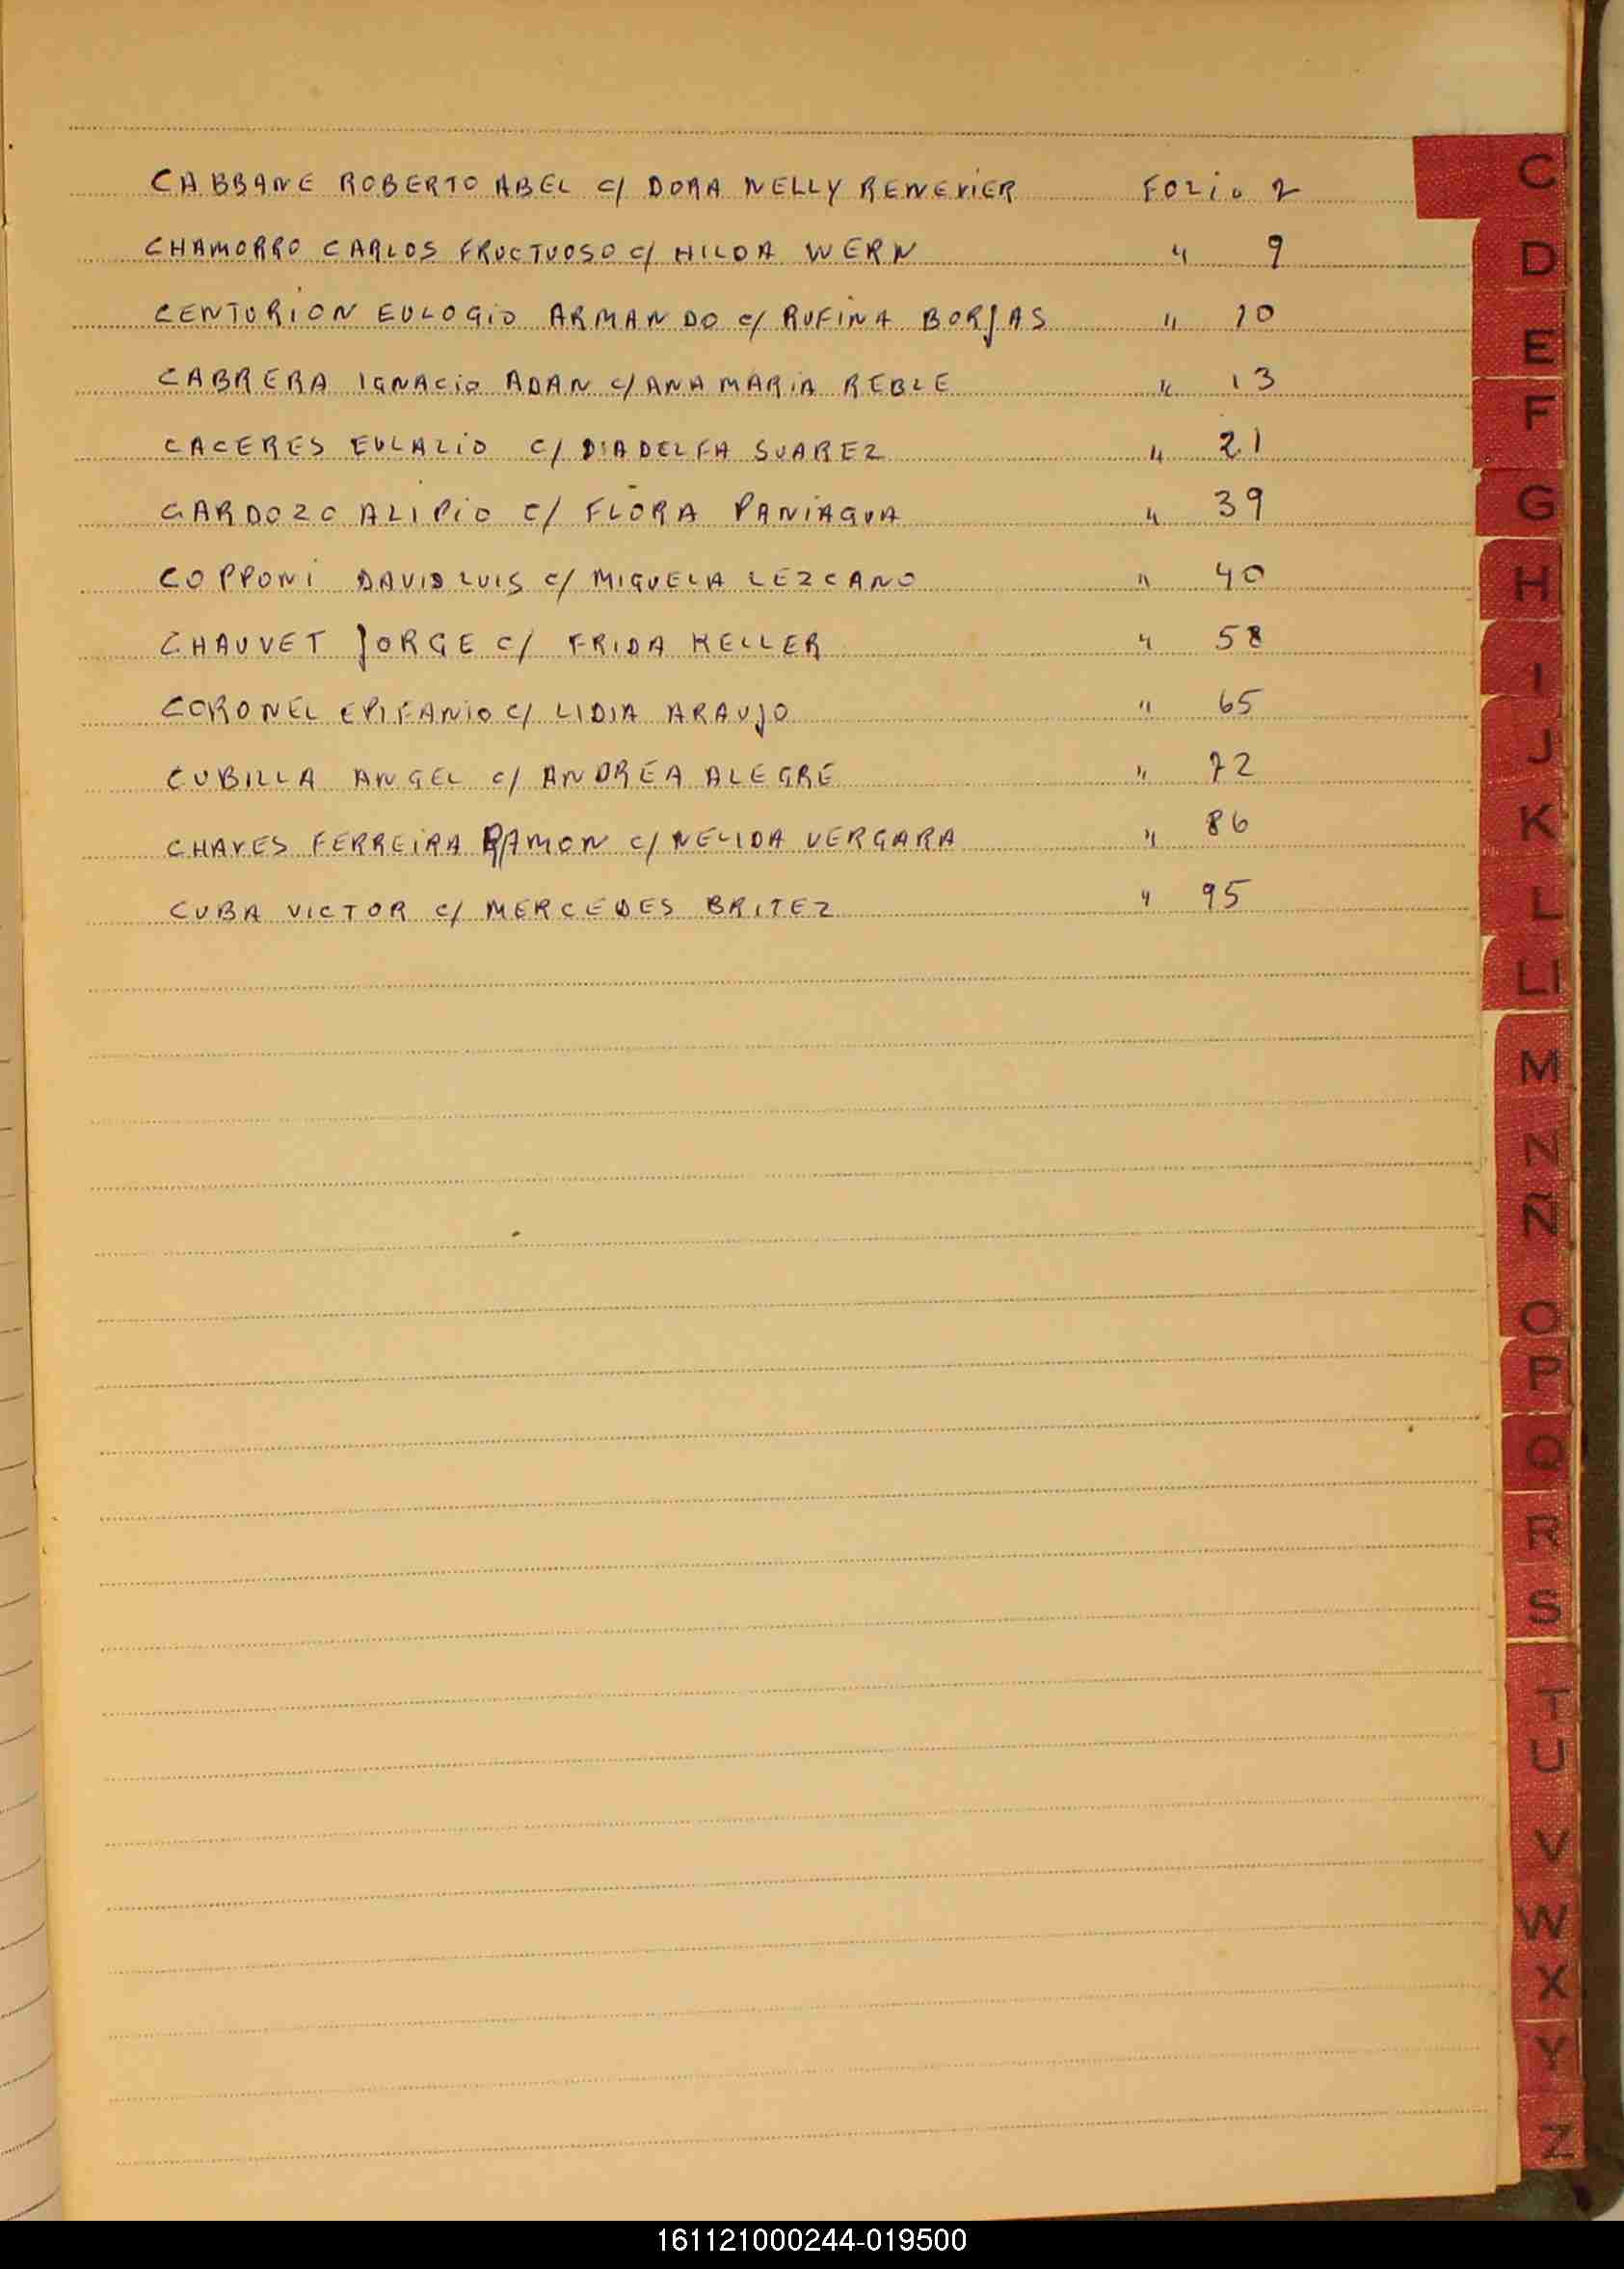 CABBANE ROBERTO ABEL C/ DORA NELLY RENEVIER FOLIO 2
CHAMORRO CARLOS FRUCTUOSO C/ HILDA WERN " 9
CENTURION EULOGIO ARMANDO C/ RUFINA BORJAS " 10
CABRERA IGNACIO ADAN C/ ANA MARIA REBLE " 13
CACERES EULALIO C/ DIADELFA SUAREZ " 21
CARDOZO ALIPIO C/ FLORA PANIAGUA " 39
COPPONI DAVID LUIS C/ MIGUELA LEZCANO " 40
CHAUVET JORGE C/ FRIDA KELLER " 58
CORONEL EPIFANIO C/ LIDIA ARAUJO " 65
CUBILLA ANGEL C/ ANDREA ALEGRE " 72
CHAVES FERREIRA RAMON C/ NELIDA VERGARA " 86
CUBA VICTOR C/ MERCEDES BRITEZ " 95
C
D
E
F
G
H
I
J
K
L
LL
M
N
Ñ
O
P
Q
R
S
T
U
V
W
X
Y
Z
161121000244-019500